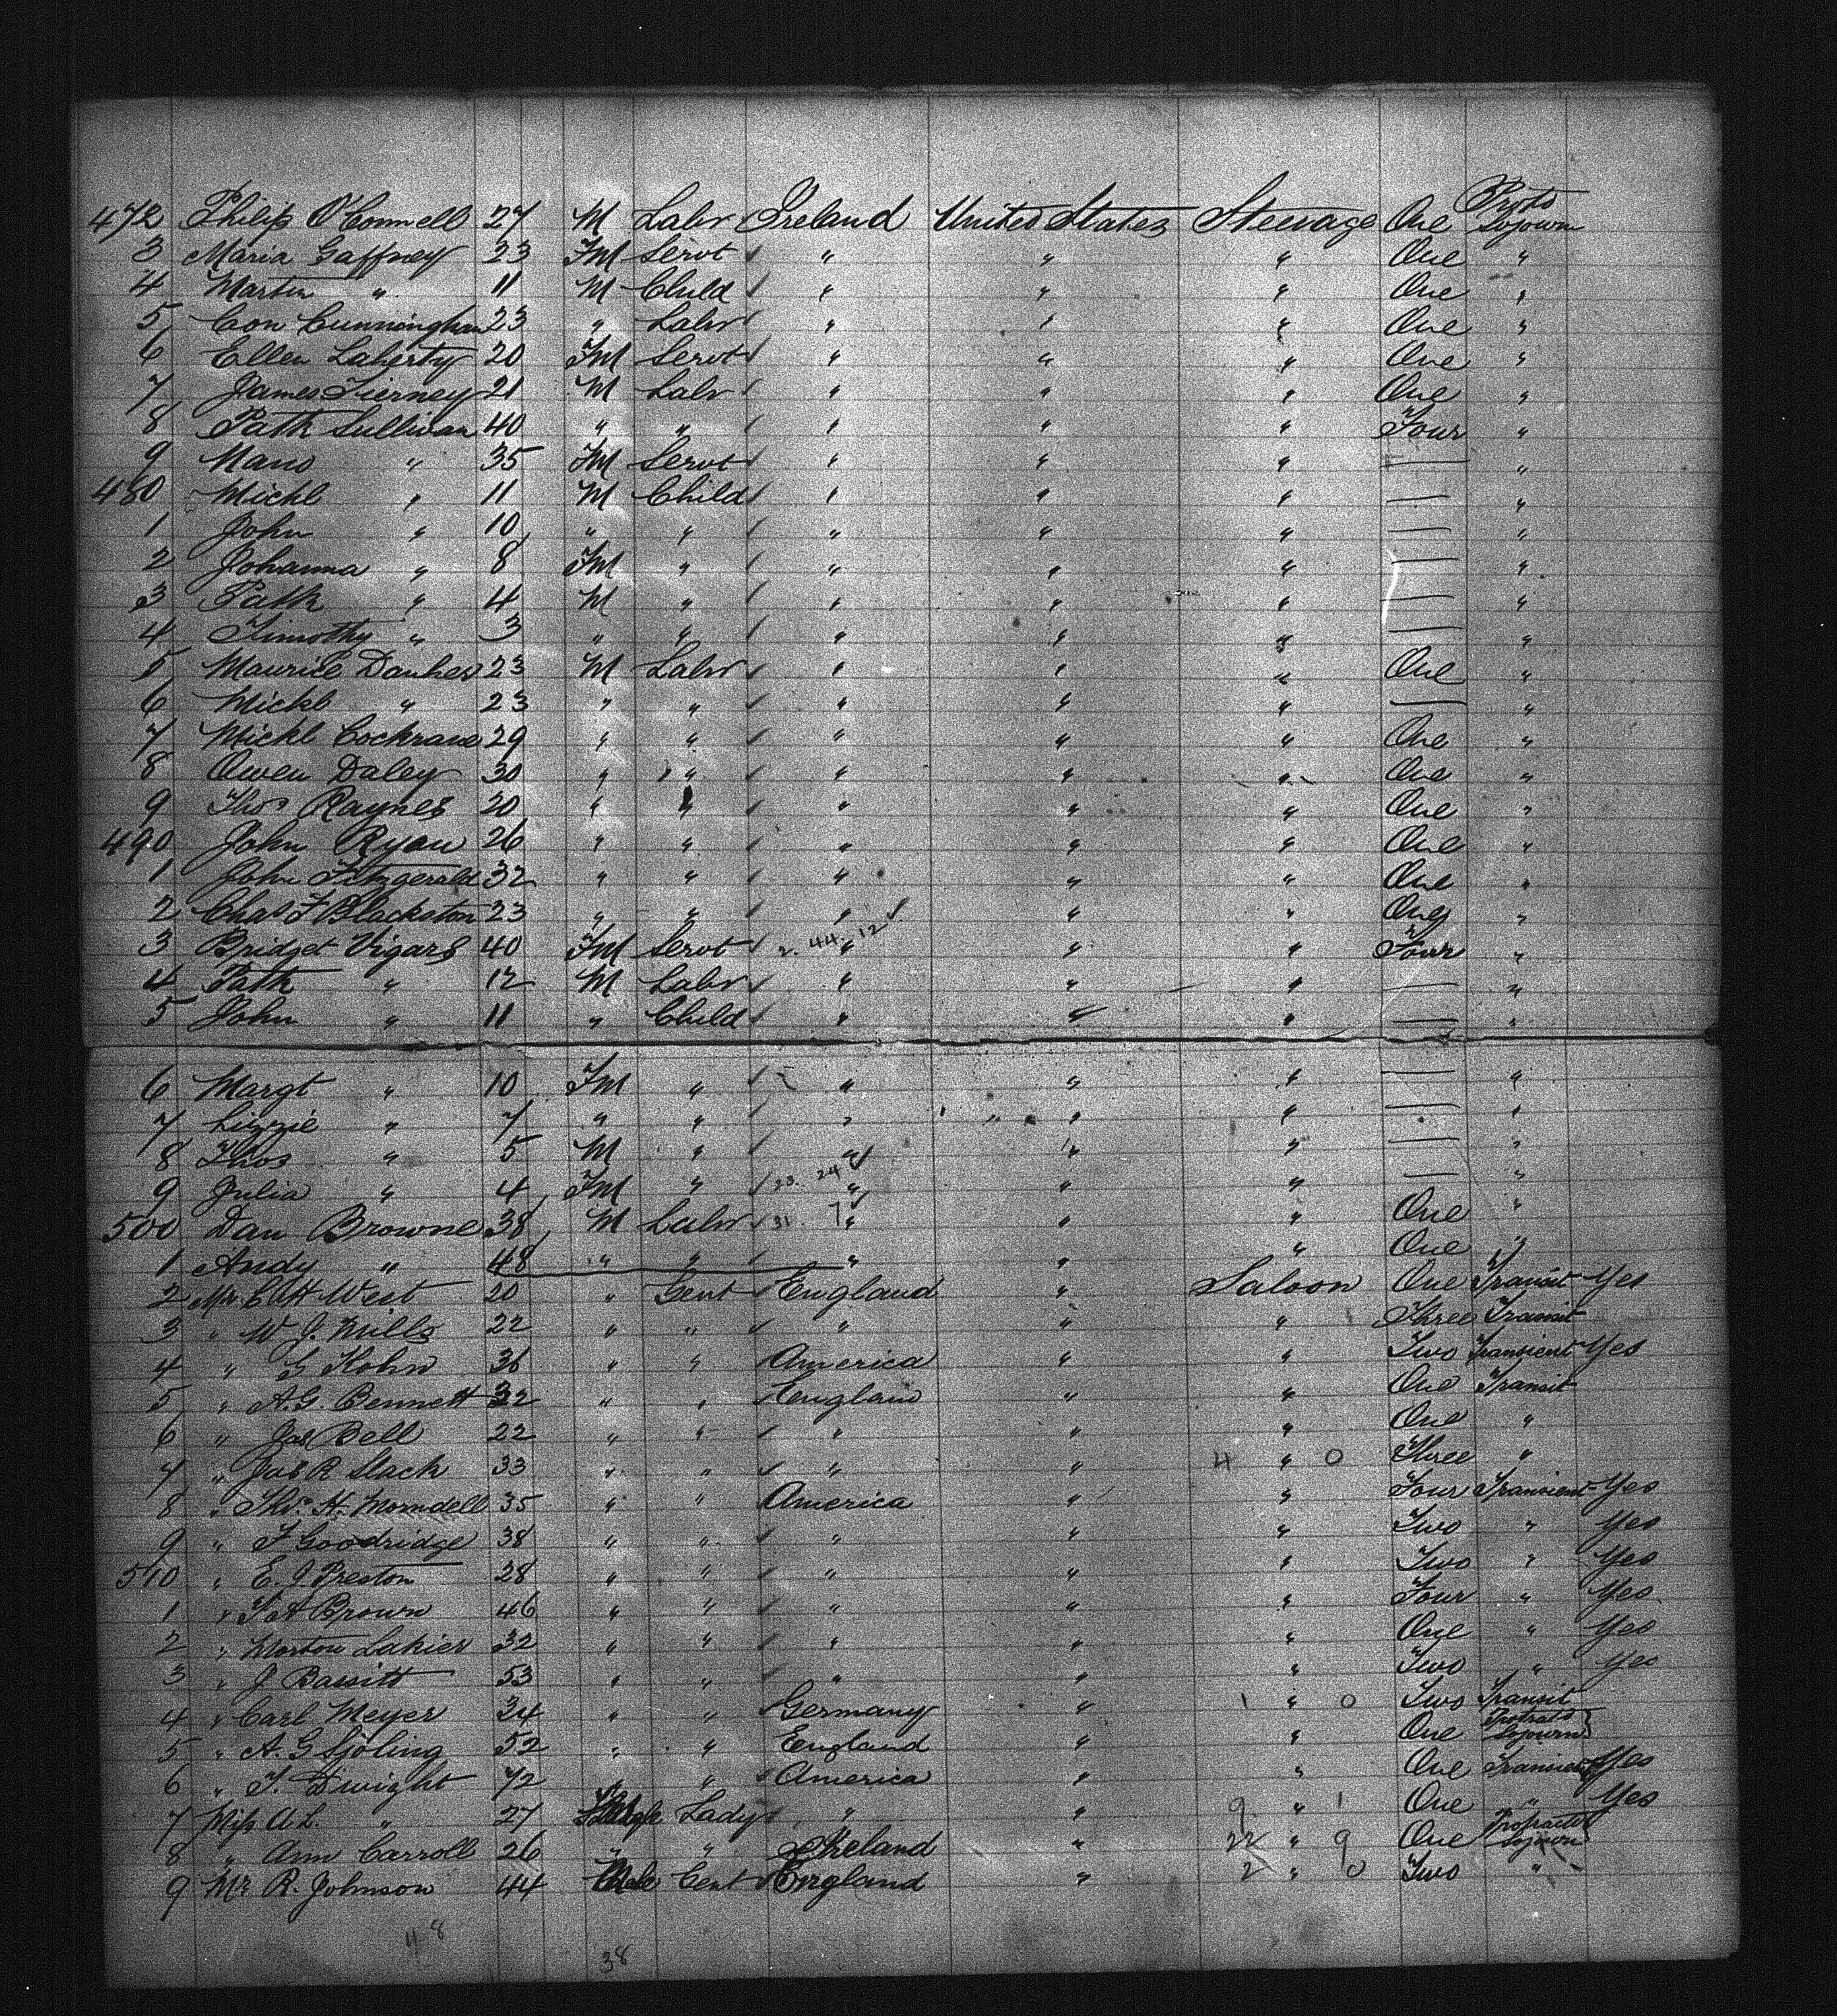 472 Philip O'Connell 27 M Labr Ireland United States Steerage One Protd Sojourn
3 Maria Gaffney 23 FM Servt " " " One "
4 Martin " 11 M Child " " " One "
5 Con Cunningham 23 " Labr " " " One "
6 Ellen Laherty 20 FM Servt " " " One "
7 James Tierney 21 M Labr " " " One "
8 Patk Sullivan 40 " " " " " Four "
9 " 35 FM Servt " " " — "
480 Michl " 11 M Child " " " — "
1 John " 10 " " " " " — "
2 Johanna " 8 FM " " " " — "
3 Patk " 4 M " " " " — "
4 Timothy " 3 " " " " " — "
5 Maurice Danher 23 M Labr " " " One "
6 Michl " 23 " " " " " — "
7 Michl Cochrane 29 " " " " " One "
8 Owen Daley 30 " " " " " One "
9 Thos Raynes 20 " " " " " One "
490 John Ryan 26 " " " " " One "
1 John Fitzgerald 32 " " " " " One "
2 Chas F Blackston 23 " " " " " One "
3 Bridget Vigars 40 FM Servt 2. 44. 12 " " " Four "
4 Patk " 12 M Labr " " " — "
5 John " 11 " Child " " " — "
6 Margt " 10 FM " " " " — "
7 Lizzie " 7 " " " " " — "
8 Thos " 5 M " " " " — "
9 Julia " 4 FM " 23. 24 " " " — "
500 Dan Browne 38 M Labr 31. 7 " " " One "
1 Andy " 48 " " " " " One "
2 Mr C H West 20 " Gent England " Saloon One Transit Yes
3 " W. J. Mills 22 " " " " " Three Transit
4 " G Kohn 36 " " America " " Two Transient Yes
5 " A. G. Bennett 32 " " England " " One Transit
6 " Jas Bell 22 " " " " " One "
7 " Jas R Slack 33 " " " " 4 " 0 Three "
8 " Thos H. 35 " " America " " Four Transient Yes
9 " F Goodridge 38 " " " " " Two " Yes
510 " E. J. Preston 28 " " " " " Two " Yes
1 " Brown 46 " " " " " Four " Yes
2 " Morton 32 " " " " " One " Yes
3 " J Bassitt 53 " " " " " Two " Yes
4 " Carl Meyer 34 " " Germany " 1 " 0 Two Transit
5 " A. G Sjoling 52 " " England " " One Sojourn
6 " T. Dwight 72 " " America " " One Transient Yes
7 Miss A. L. " 27 Lady " " 9 " 1 One " Yes
8 " Ann Carroll 26 " " Ireland " 22 " 9 One Protracted Sojourn
9 Mr R. Johnson 44 Male Gent England " 2 " 0 Two "
48
38